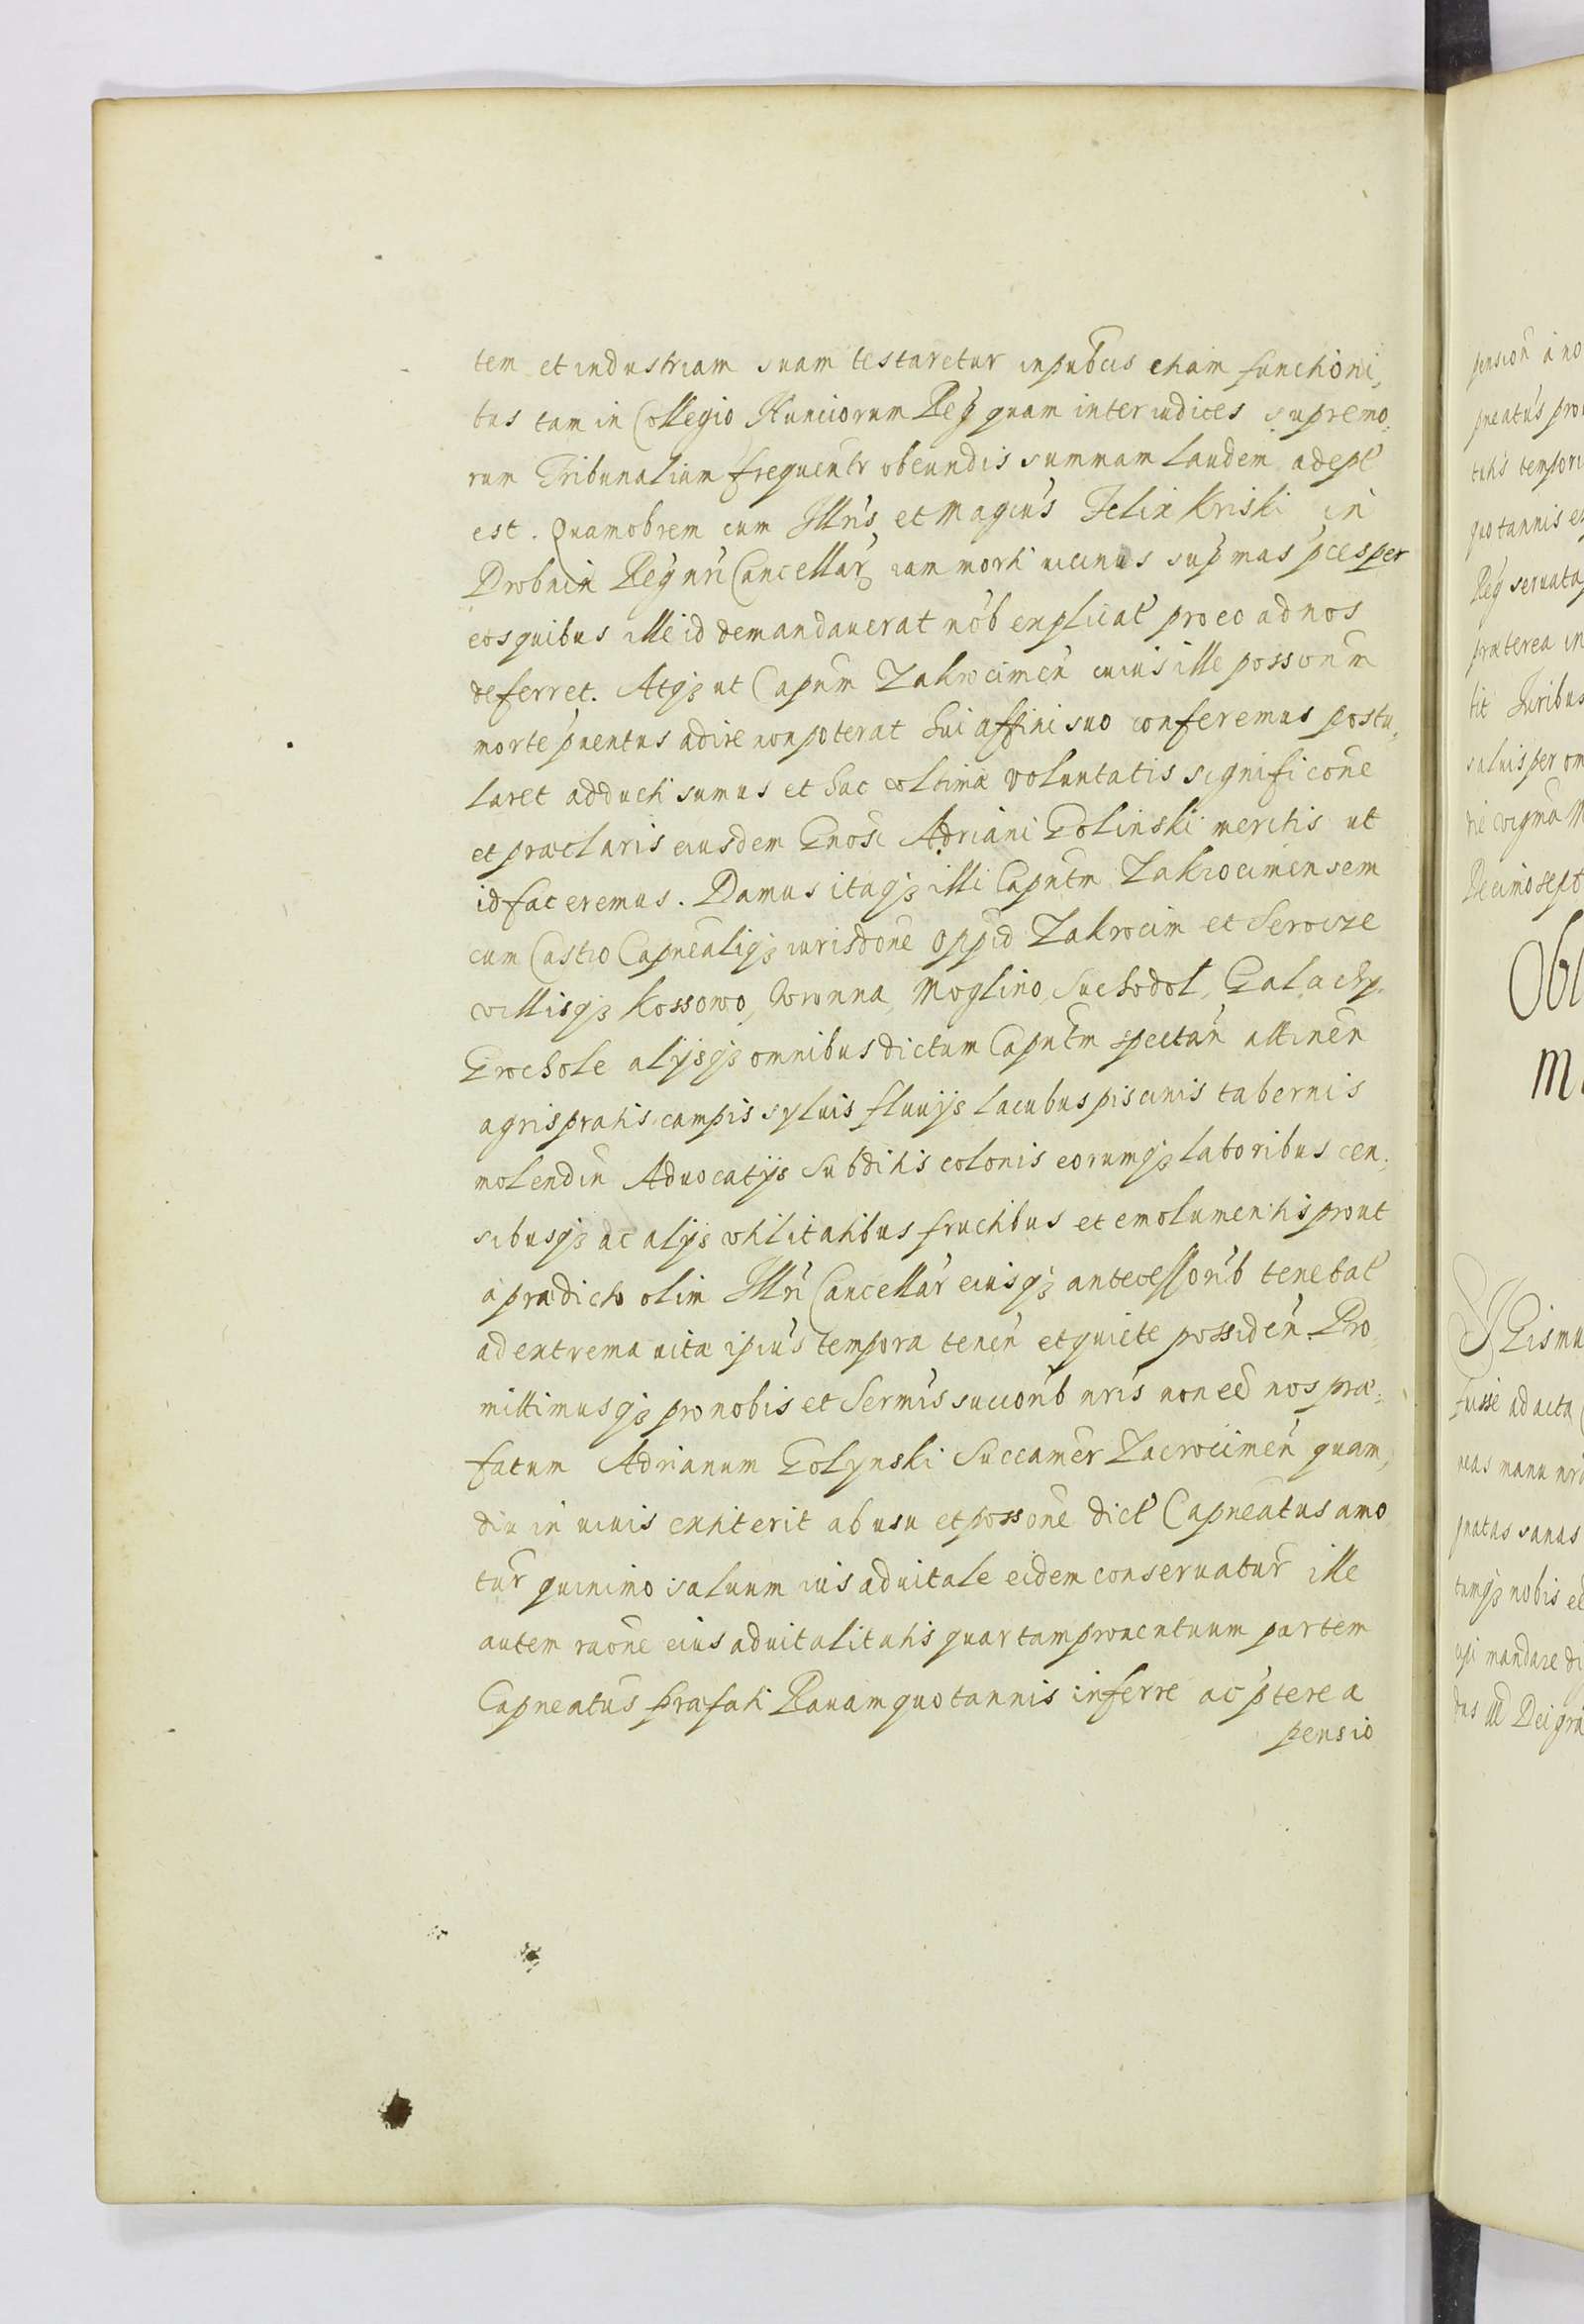 tem et industriam suam testaretur in pubcis etiam functioni,
bus tam in Collegio Nunciorum Reg quam inter iudices supremo,
rum Tribunalium frequentr obeundis summam laudem adept
est. Quamobrem cum Illris et Magcus Felix Kriski in
Drobnin Reg nri Cancellar iam morti uicinus supmas pces per
eos quibus ille id demandauerat nob explicat pro eo ad nos
deferret. Atqz ut Capnm Zakrocimen cuius ille possonm
morte puentus adire non poterat hui affini suo conferemus postu,
laret adducti sumus et hac vltimæ voluntatis significone
et præclaris eiusdem Gnosi Adriani Golinski meritis ut
id faceremus. Damus itaqz illi Capntm Zakrocimensem
cum Castro Capnealiqz iurisdone oppid Zakrocim et Serocze
villisqz Kossowo, Wronna, Moglino, Suchodol, Galachy
Grochole alijsqz omnibus dictum Capntm spectan attinen
agris pratis campis syluis fluuijs lacubus piscinis tabernis
molendin Aduocatijs Subditis colonis eorumqz laboribus cen,
sibusqz ac alijs vtilitatibus fructibus et emolumentis prout
à prædicto olim Illri Cancellar eiusqz antecessorib tenebat
ad extrema uitæ ipius tempora tenen et quiete possiden. Pro
mittimusqz pro nobis et Sermis succorib nris non eē nos præ,
fatum Adrianum Golynski Succamer Zacrocimen quam,
diu in uiuis extiterit ab usu et possone dict Capneatus amo
tur quinimo saluum ius aduitale eidem conseruatur ille
autem raone eius aduitalitatis quartam prouentuum partem
Capneatus præfati Rauam quotannis inferre ac pterea
pensio